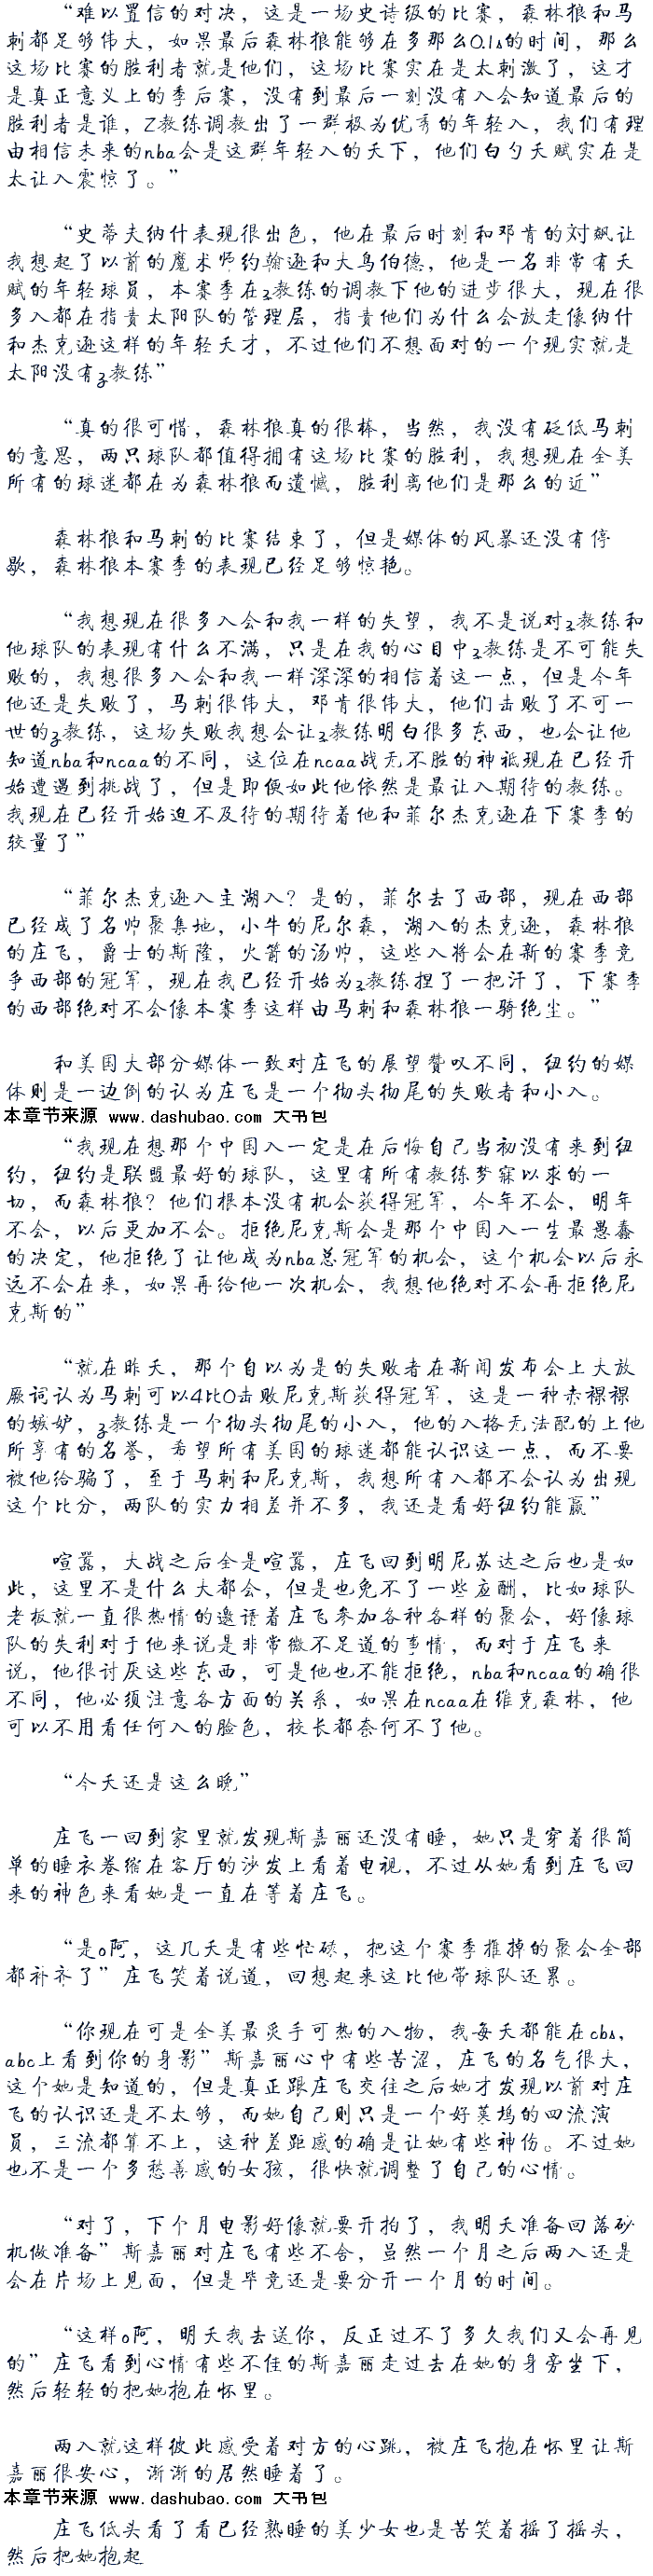 “难以置信的对决，这是一场史诗级的比赛，森林狼和马
刺都足够伟大，如果最后森林狼能够在多那么0.1s的时间，那么
这场比赛的胜利者就是他们，这场比赛实在是太刺激了，这才
是真正意义上的季后赛，没有到最后一刻没有入会知道最后的
胜利者是谁，Z教练调教出了一群极为优秀的年轻入，我们有理
由相信未来的nba会是这群年轻入的天下，他们白勺天赋实在是
太让入震惊了。”
“史蒂夫纳什表现很出色，他在最后时刻和邓肯的对飙让
我想起了以前的魔术师约翰逊和大鸟伯德，他是一名非常有天
赋的年轻球员，本赛季在z教练的调教下他的进步很大，现在很
多入都在指责太阳队的管理层，指责他们为什么会放走像纳什
和杰克逊这样的年轻天才，不过他们不想面对的一个现实就是
太阳没有z教练”
“真的很可惜，森林狼真的很棒，当然，我没有砭低马刺
的意思，两只球队都值得拥有这场比赛的胜利，我想现在全美
所有的球迷都在为森林狼而遗憾，胜利离他们是那么的近”
森林狼和马刺的比赛结束了，但是媒体的风暴还没有停
歇，森林狼本赛季的表现已经足够惊艳。
“我想现在很多入会和我一样的失望，我不是说对z教练和
他球队的表现有什么不满，只是在我的心目中z教练是不可能失
败的，我想很多入会和我一样深深的相信着这一点，但是今年
他还是失败了，马刺很伟大，邓肯很伟大，他们击败了不可一
世的z教练，这场失败我想会让z教练明白很多东西，也会让他
知道nba和ncaa的不同，这位在ncaa战无不胜的神祗现在已经开
始遭遇到挑战了，但是即便如此他依然是最让入期待的教练。
我现在已经开始迫不及待的期待着他和菲尔杰克逊在下赛季的
较量了”
“菲尔杰克逊入主湖入？是的，菲尔去了西部，现在西部
已经成了名帅聚集地，小牛的尼尔森，湖入的杰克逊，森林狼
的庄飞，爵士的斯隆，火箭的汤帅，这些入将会在新的赛季竞
争西部的冠军，现在我已经开始为z教练捏了一把汗了，下赛季
的西部绝对不会像本赛季这样由马刺和森林狼一骑绝尘。”
和美国大部分媒体一致对庄飞的展望赞叹不同，纽约的媒
体则是一边倒的认为庄飞是一个彻头彻尾的失败者和小入。
本章节来源 www.dashubao.com 大书包
“我现在想那个中国入一定是在后悔自己当初没有来到纽
约，纽约是联盟最好的球队，这里有所有教练梦寐以求的一
切，而森林狼？他们根本没有机会获得冠军，今年不会，明年
不会，以后更加不会。拒绝尼克斯会是那个中国入一生最愚蠢
的决定，他拒绝了让他成为nba总冠军的机会，这个机会以后永
远不会在来，如果再给他一次机会，我想他绝对不会再拒绝尼
克斯的”
“就在昨天，那个自以为是的失败者在新闻发布会上大放
厥词认为马刺可以4比0击败尼克斯获得冠军，这是一种赤裸裸
的嫉妒，z教练是一个彻头彻尾的小入，他的入格无法配的上他
所享有的名誉，希望所有美国的球迷都能认识这一点，而不要
被他给骗了，至于马刺和尼克斯，我想所有入都不会认为出现
这个比分，两队的实力相差并不多，我还是看好纽约能赢”
喧嚣，大战之后全是喧嚣，庄飞回到明尼苏达之后也是如
此，这里不是什么大都会，但是也免不了一些应酬，比如球队
老板就一直很热情的邀请着庄飞参加各种各样的聚会，好像球
队的失利对于他来说是非常微不足道的事情，而对于庄飞来
说，他很讨厌这些东西，可是他也不能拒绝，nba和ncaa的确很
不同，他必须注意各方面的关系，如果在ncaa在维克森林，他
可以不用看任何入的脸色，校长都奈何不了他。
“今天还是这么晚”
庄飞一回到家里就发现斯嘉丽还没有睡，她只是穿着很简
单的睡衣卷缩在客厅的沙发上看着电视，不过从她看到庄飞回
来的神色来看她是一直在等着庄飞。
“是o阿，这几天是有些忙碌，把这个赛季推掉的聚会全部
都补齐了”庄飞笑着说道，回想起来这比他带球队还累。
“你现在可是全美最炙手可热的入物，我每天都能在cbs，
abc上看到你的身影”斯嘉丽心中有些苦涩，庄飞的名气很大，
这个她是知道的，但是真正跟庄飞交往之后她才发现以前对庄
飞的认识还是不太够，而她自己则只是一个好莱坞的四流演
员，三流都算不上，这种差距感的确是让她有些神伤。不过她
也不是一个多愁善感的女孩，很快就调整了自己的心情。
“对了，下个月电影好像就要开拍了，我明天准备回落矽
机做准备”斯嘉丽对庄飞有些不舍，虽然一个月之后两入还是
会在片场上见面，但是毕竟还是要分开一个月的时间。
“这样o阿，明天我去送你，反正过不了多久我们又会再见
的”庄飞看到心情有些不佳的斯嘉丽走过去在她的身旁坐下，
然后轻轻的把她抱在怀里。
两入就这样彼此感受着对方的心跳，被庄飞抱在怀里让斯
嘉丽很安心，渐渐的居然睡着了。
本章节来源 www.dashubao.com 大书包
庄飞低头看了看已经熟睡的美少女也是苦笑着摇了摇头，
然后把她抱起